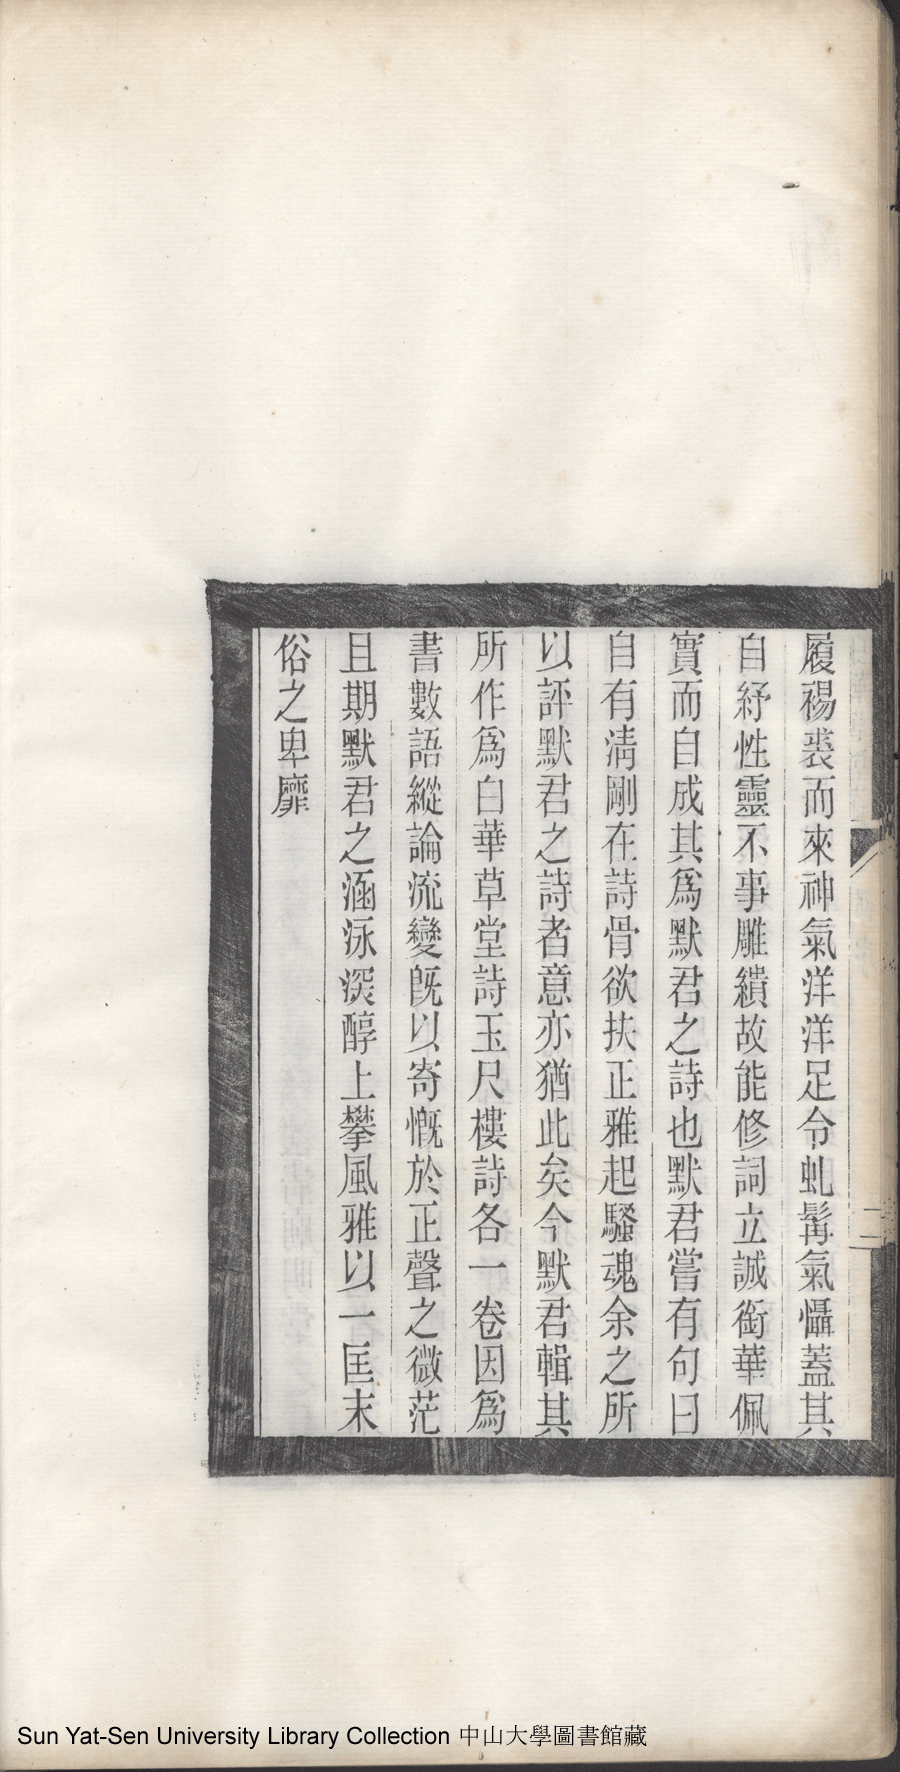 履裼裘而來神氣洋洋足令虬髯氣懾蓋其
自紓性靈不事雕繢故能修詞立誠銜華佩
實而自成其為默君之詩也默君嘗有句曰
自有清剛在詩骨欲扶正雅起騷魂余之所
以評默君之詩者意亦猶此矣今默君輯其
所作為白華草堂詩玉尺樓詩各一卷因為
書數語縱論流變旣以寄慨於正聲之微茫
且期默君之涵泳深醇上攀風雅以一匡末
俗之卑靡
二
Sun Yat-Sen University Library Collection 中山大學圖書館藏